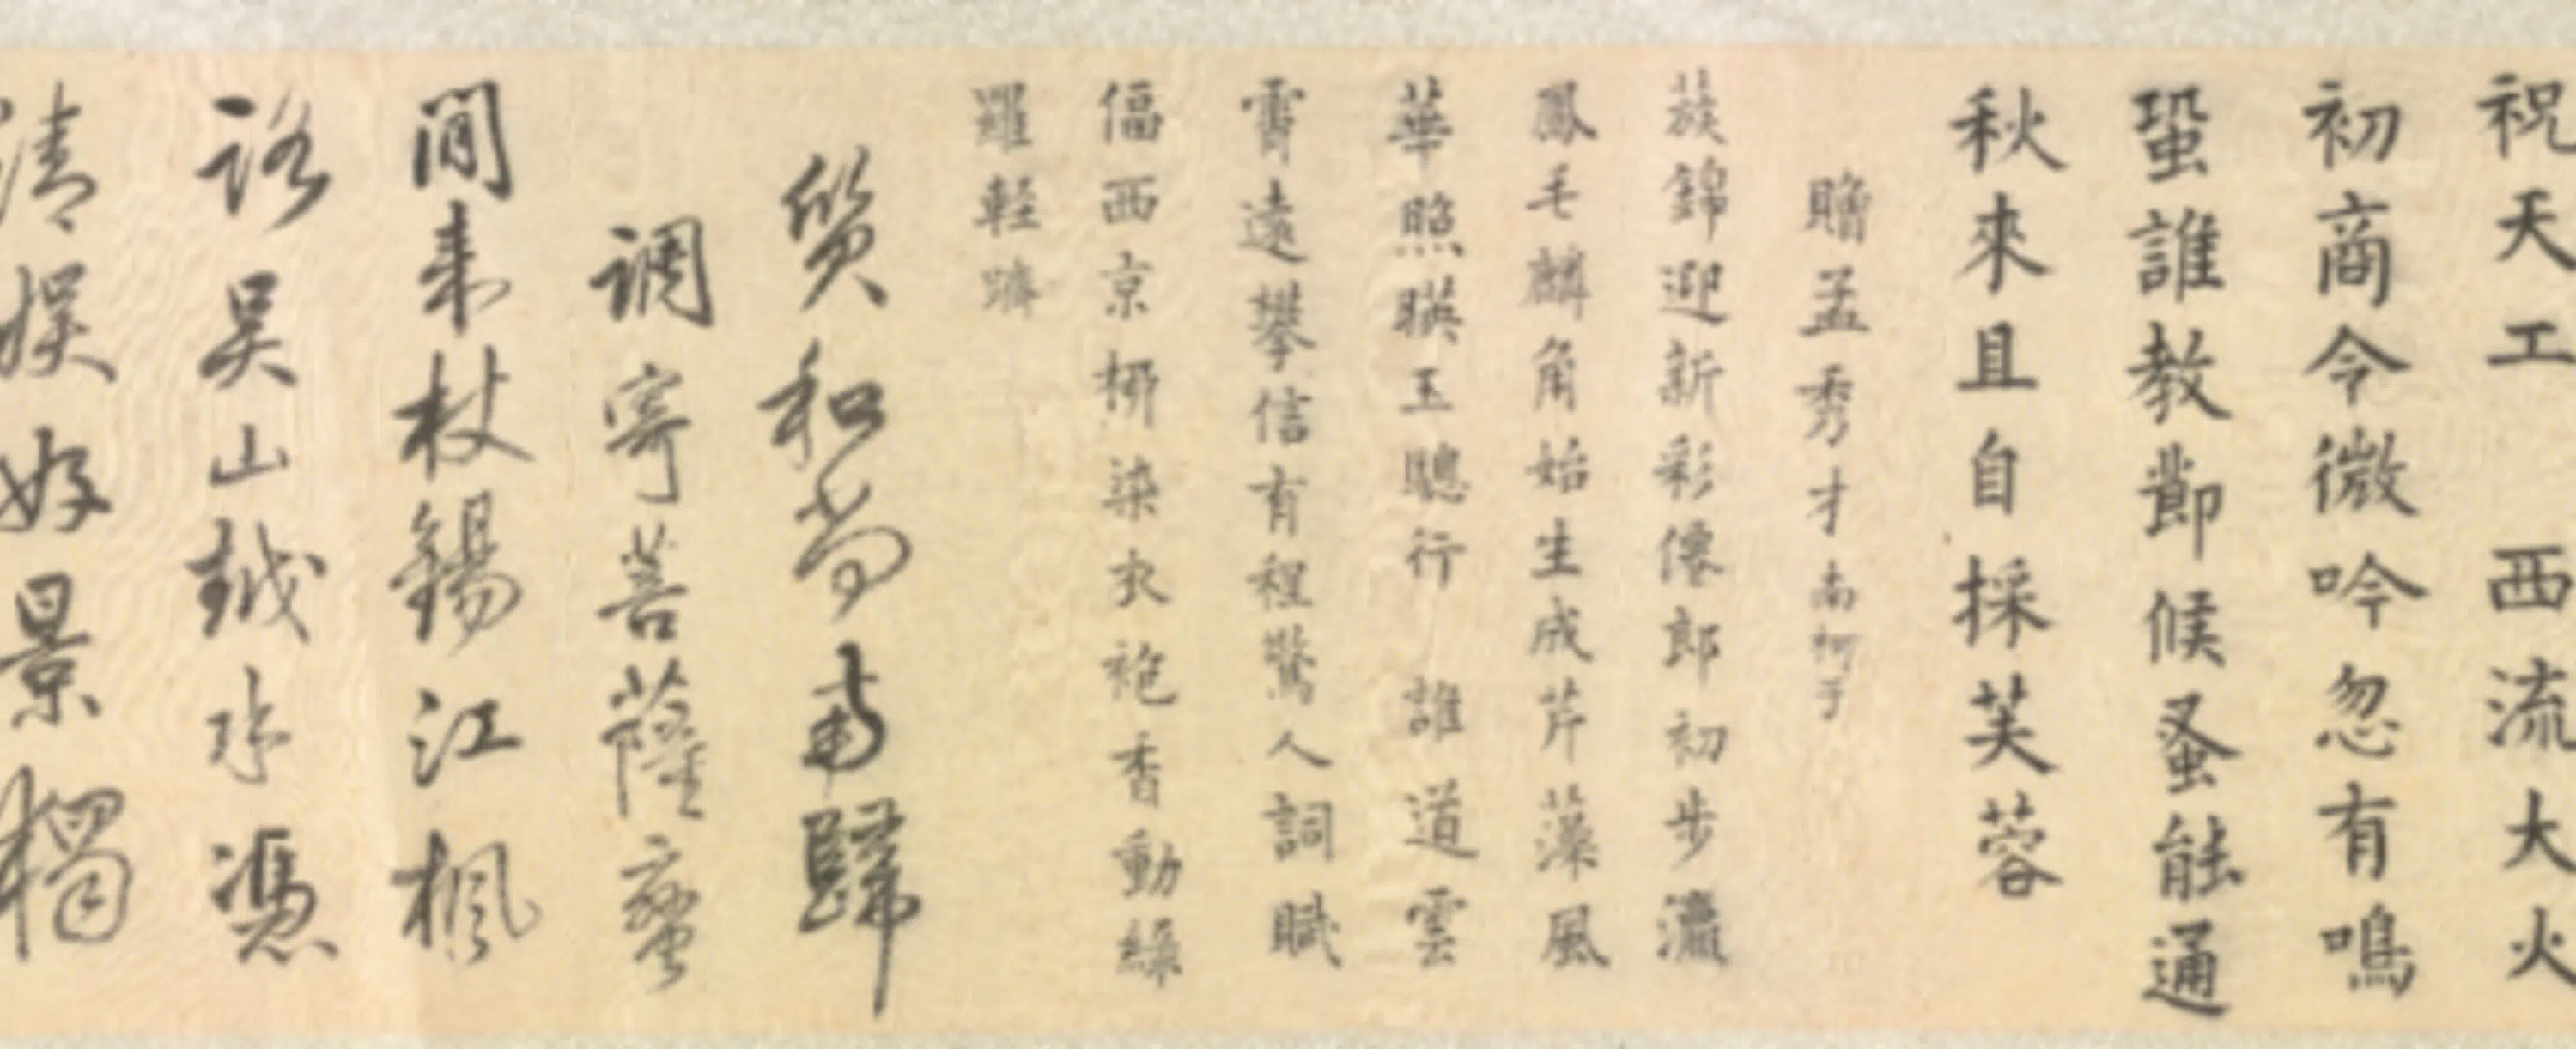 祝天工　西流大火
初商令微吟忽有鳴
蛩誰教節候蚤能通
秋來且自採芙蓉
贈孟秀才南柯子
蔟錦迎新彩僊郎初步瀛
鳳毛麟角始生成芹藻風
華照暎玉驄行　誰道雲
霄遠攀信有程驚人詞賦
偪西京柳染衣袍香動綠
羅輕躋
質和尚南歸
調寄菩薩蠻
閒来杖錫江楓
路吳山越水憑
清娱好景獨